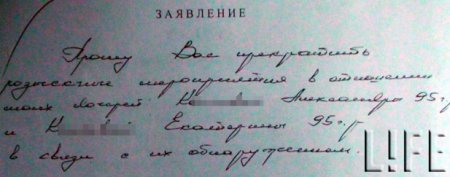 ЗАЯВЛЕНИЕ
Прошу Вас прекратить
розыскные мероприятия в отношении
моих дочерей К Александры 95 г.
и К Екатерины 95 г.р
в связи с их обнаружением.
L!FE